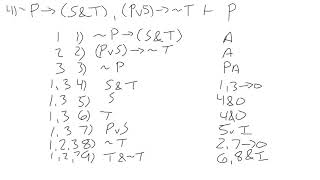 4) ~P → (S&T), (PvS) → ~T ⊢ P
1 1) ~P → (S&T) A
2 2) (PvS) → ~T A
3 3) ~P PA
1,3 4) S&T 1,3 →O
1,3 5) S 4&O
1,3 6) T 4&O
1,3 7) PvS 5vI
1,2,3 8) ~T 2,7 →O
1,2,3 9) T&~T 6,8&I